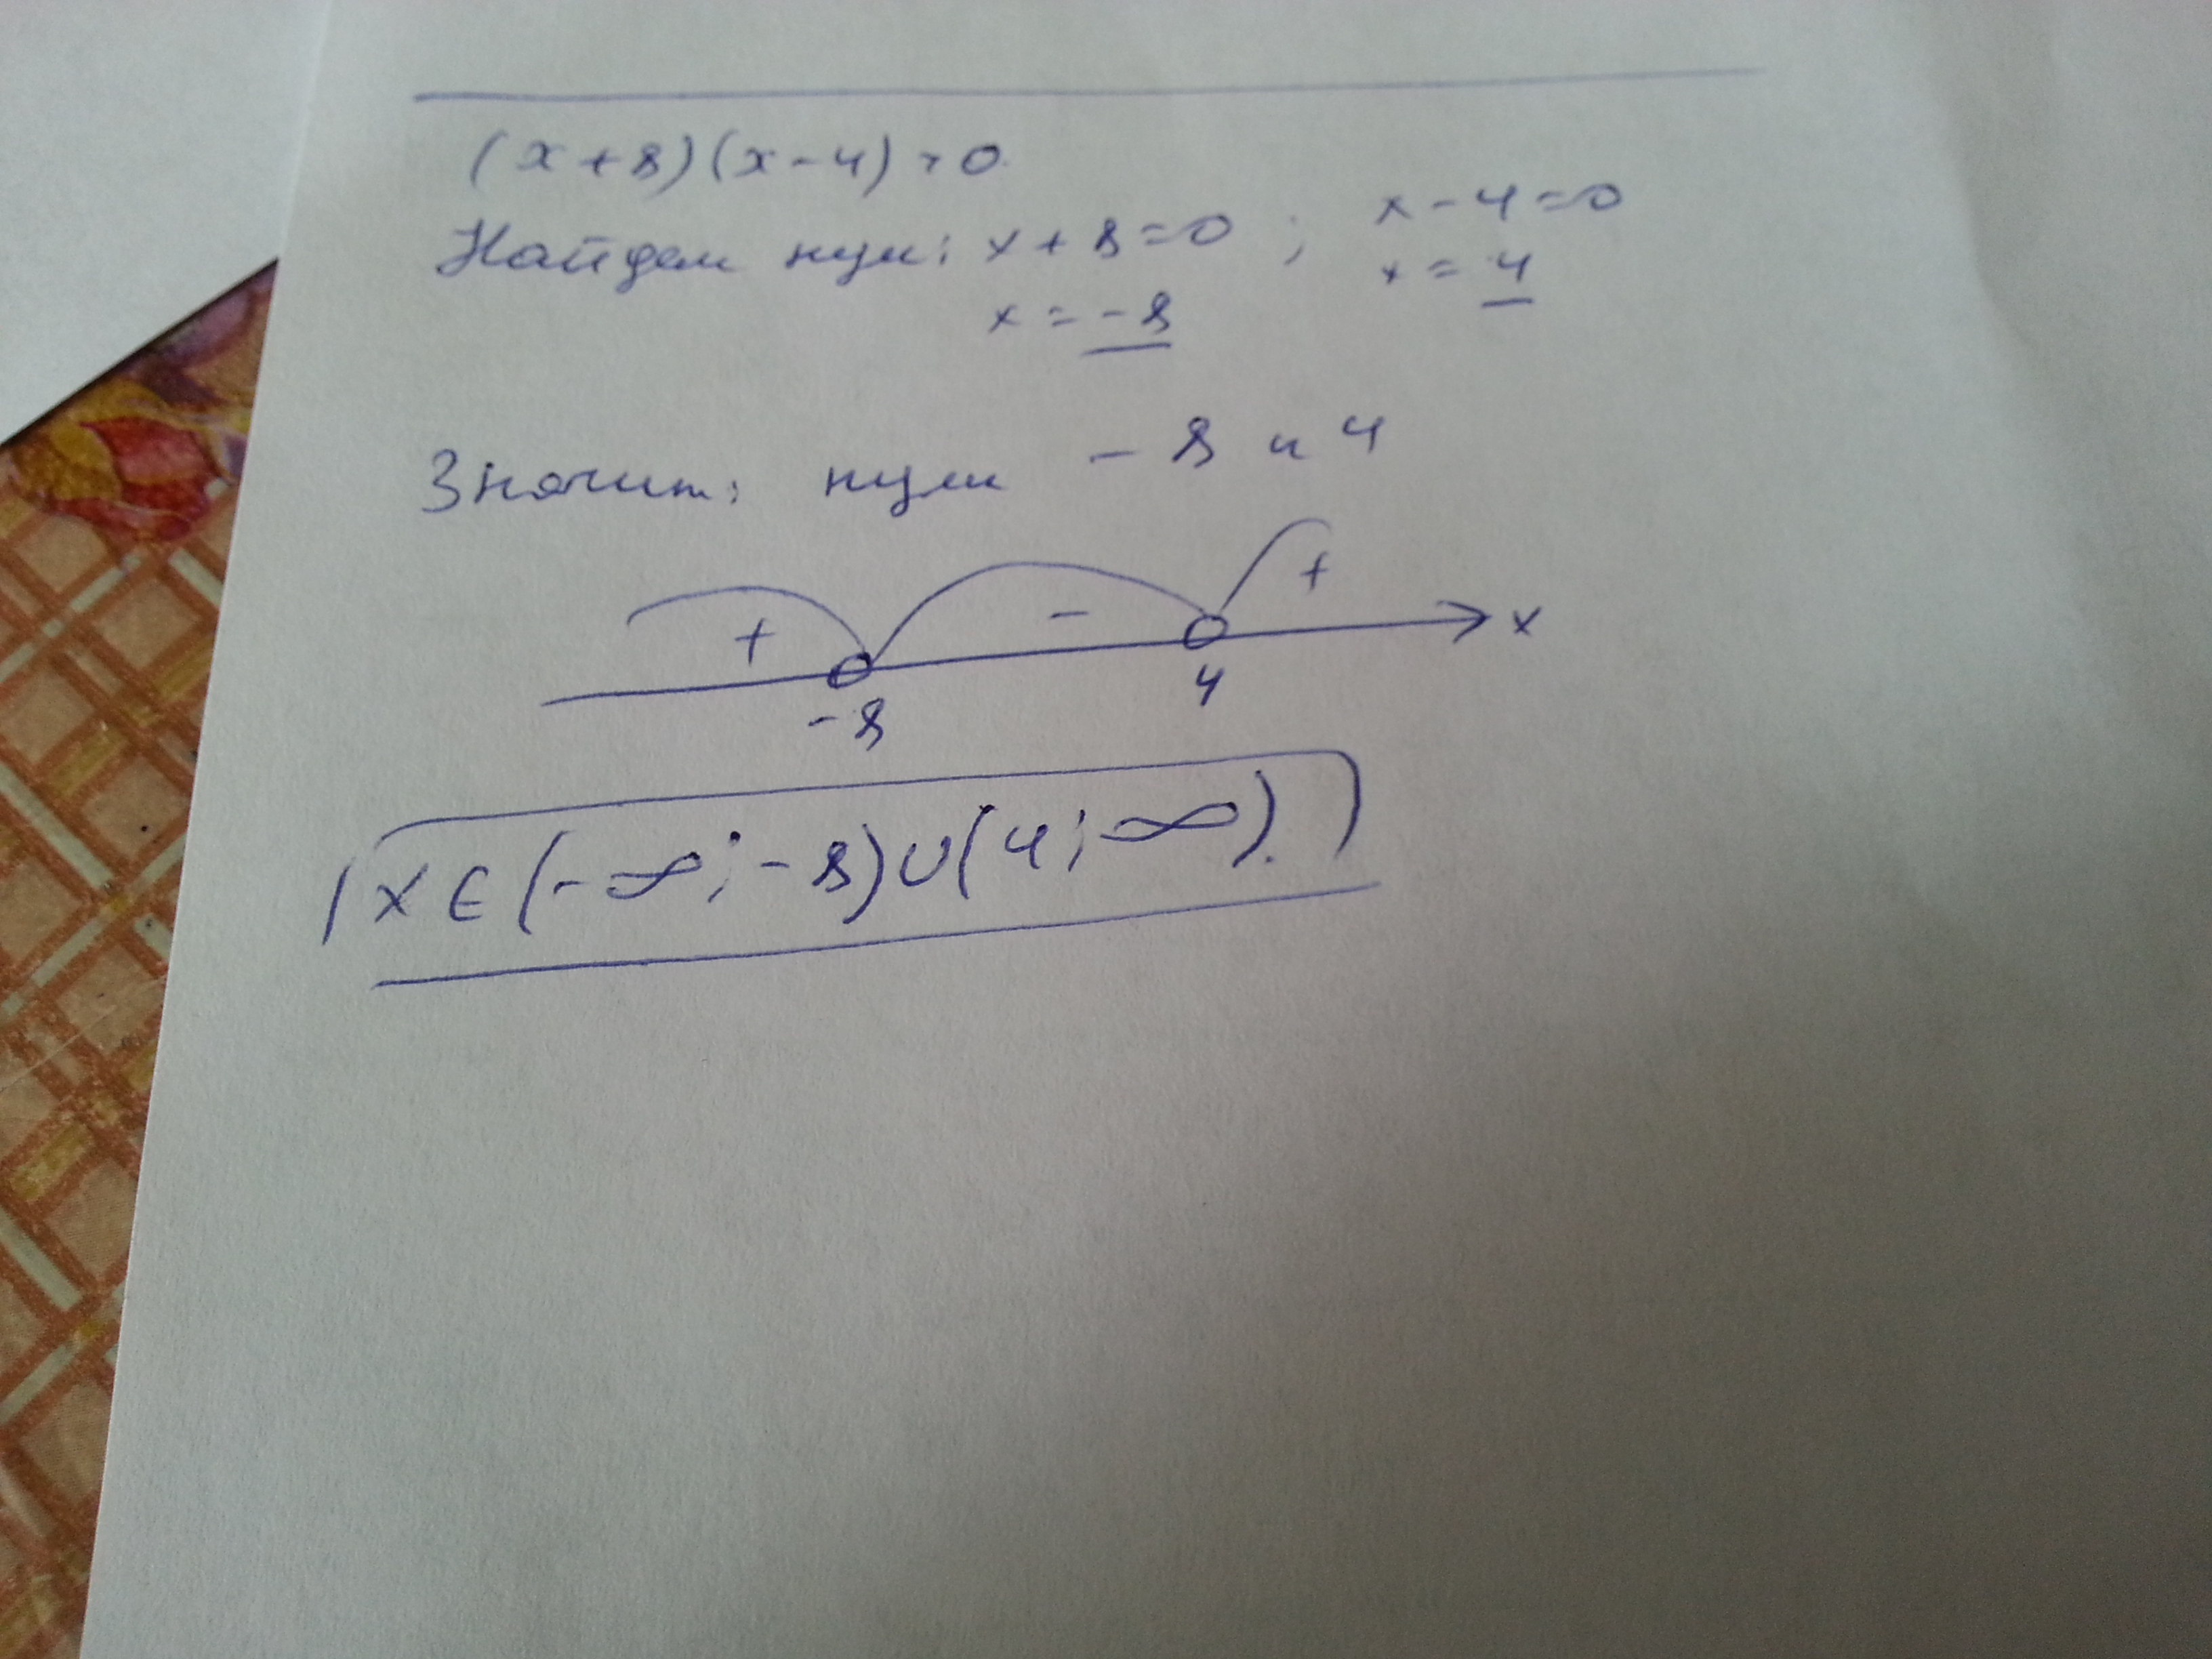 (x+8)(x-4)>0.
Найдем нули: x+8=0 ; x-4=0
x=-8 x=4
Значит: нули -8 и 4
+ - + x
-8 4
x∈(-∞;-8)∪(4;∞).